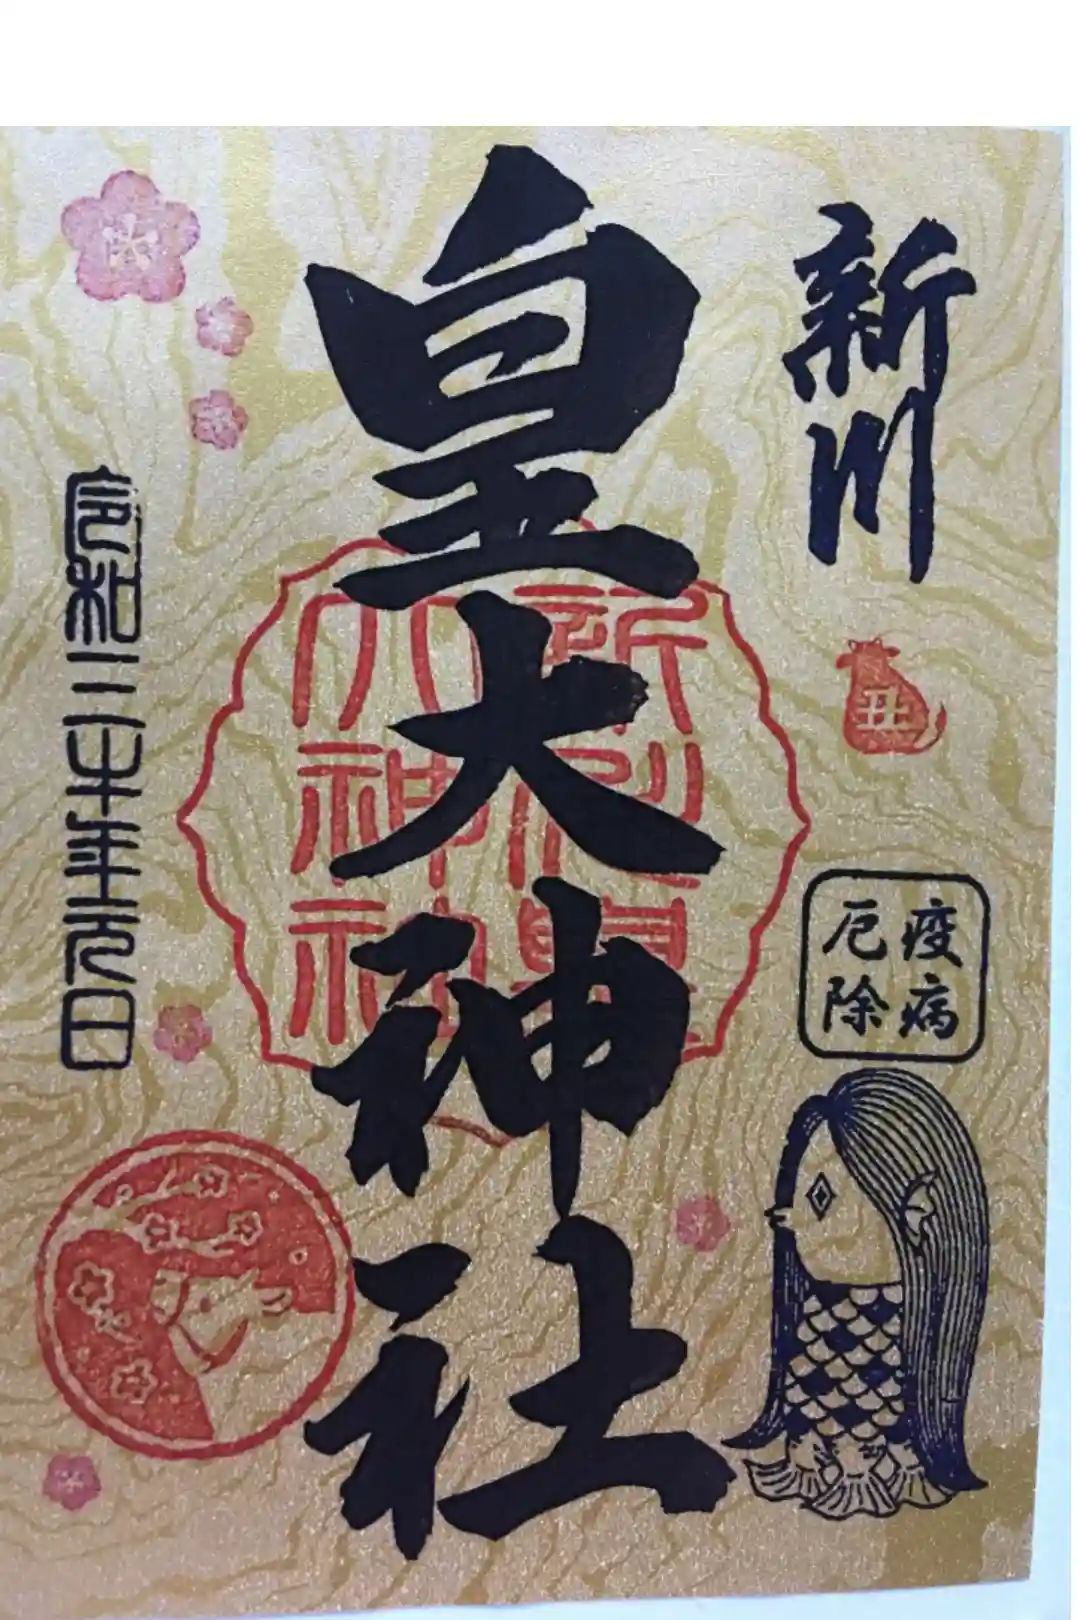 新川
皇大神社
新川皇
大神社
丑
疫病
厄除
令和三牛年元日